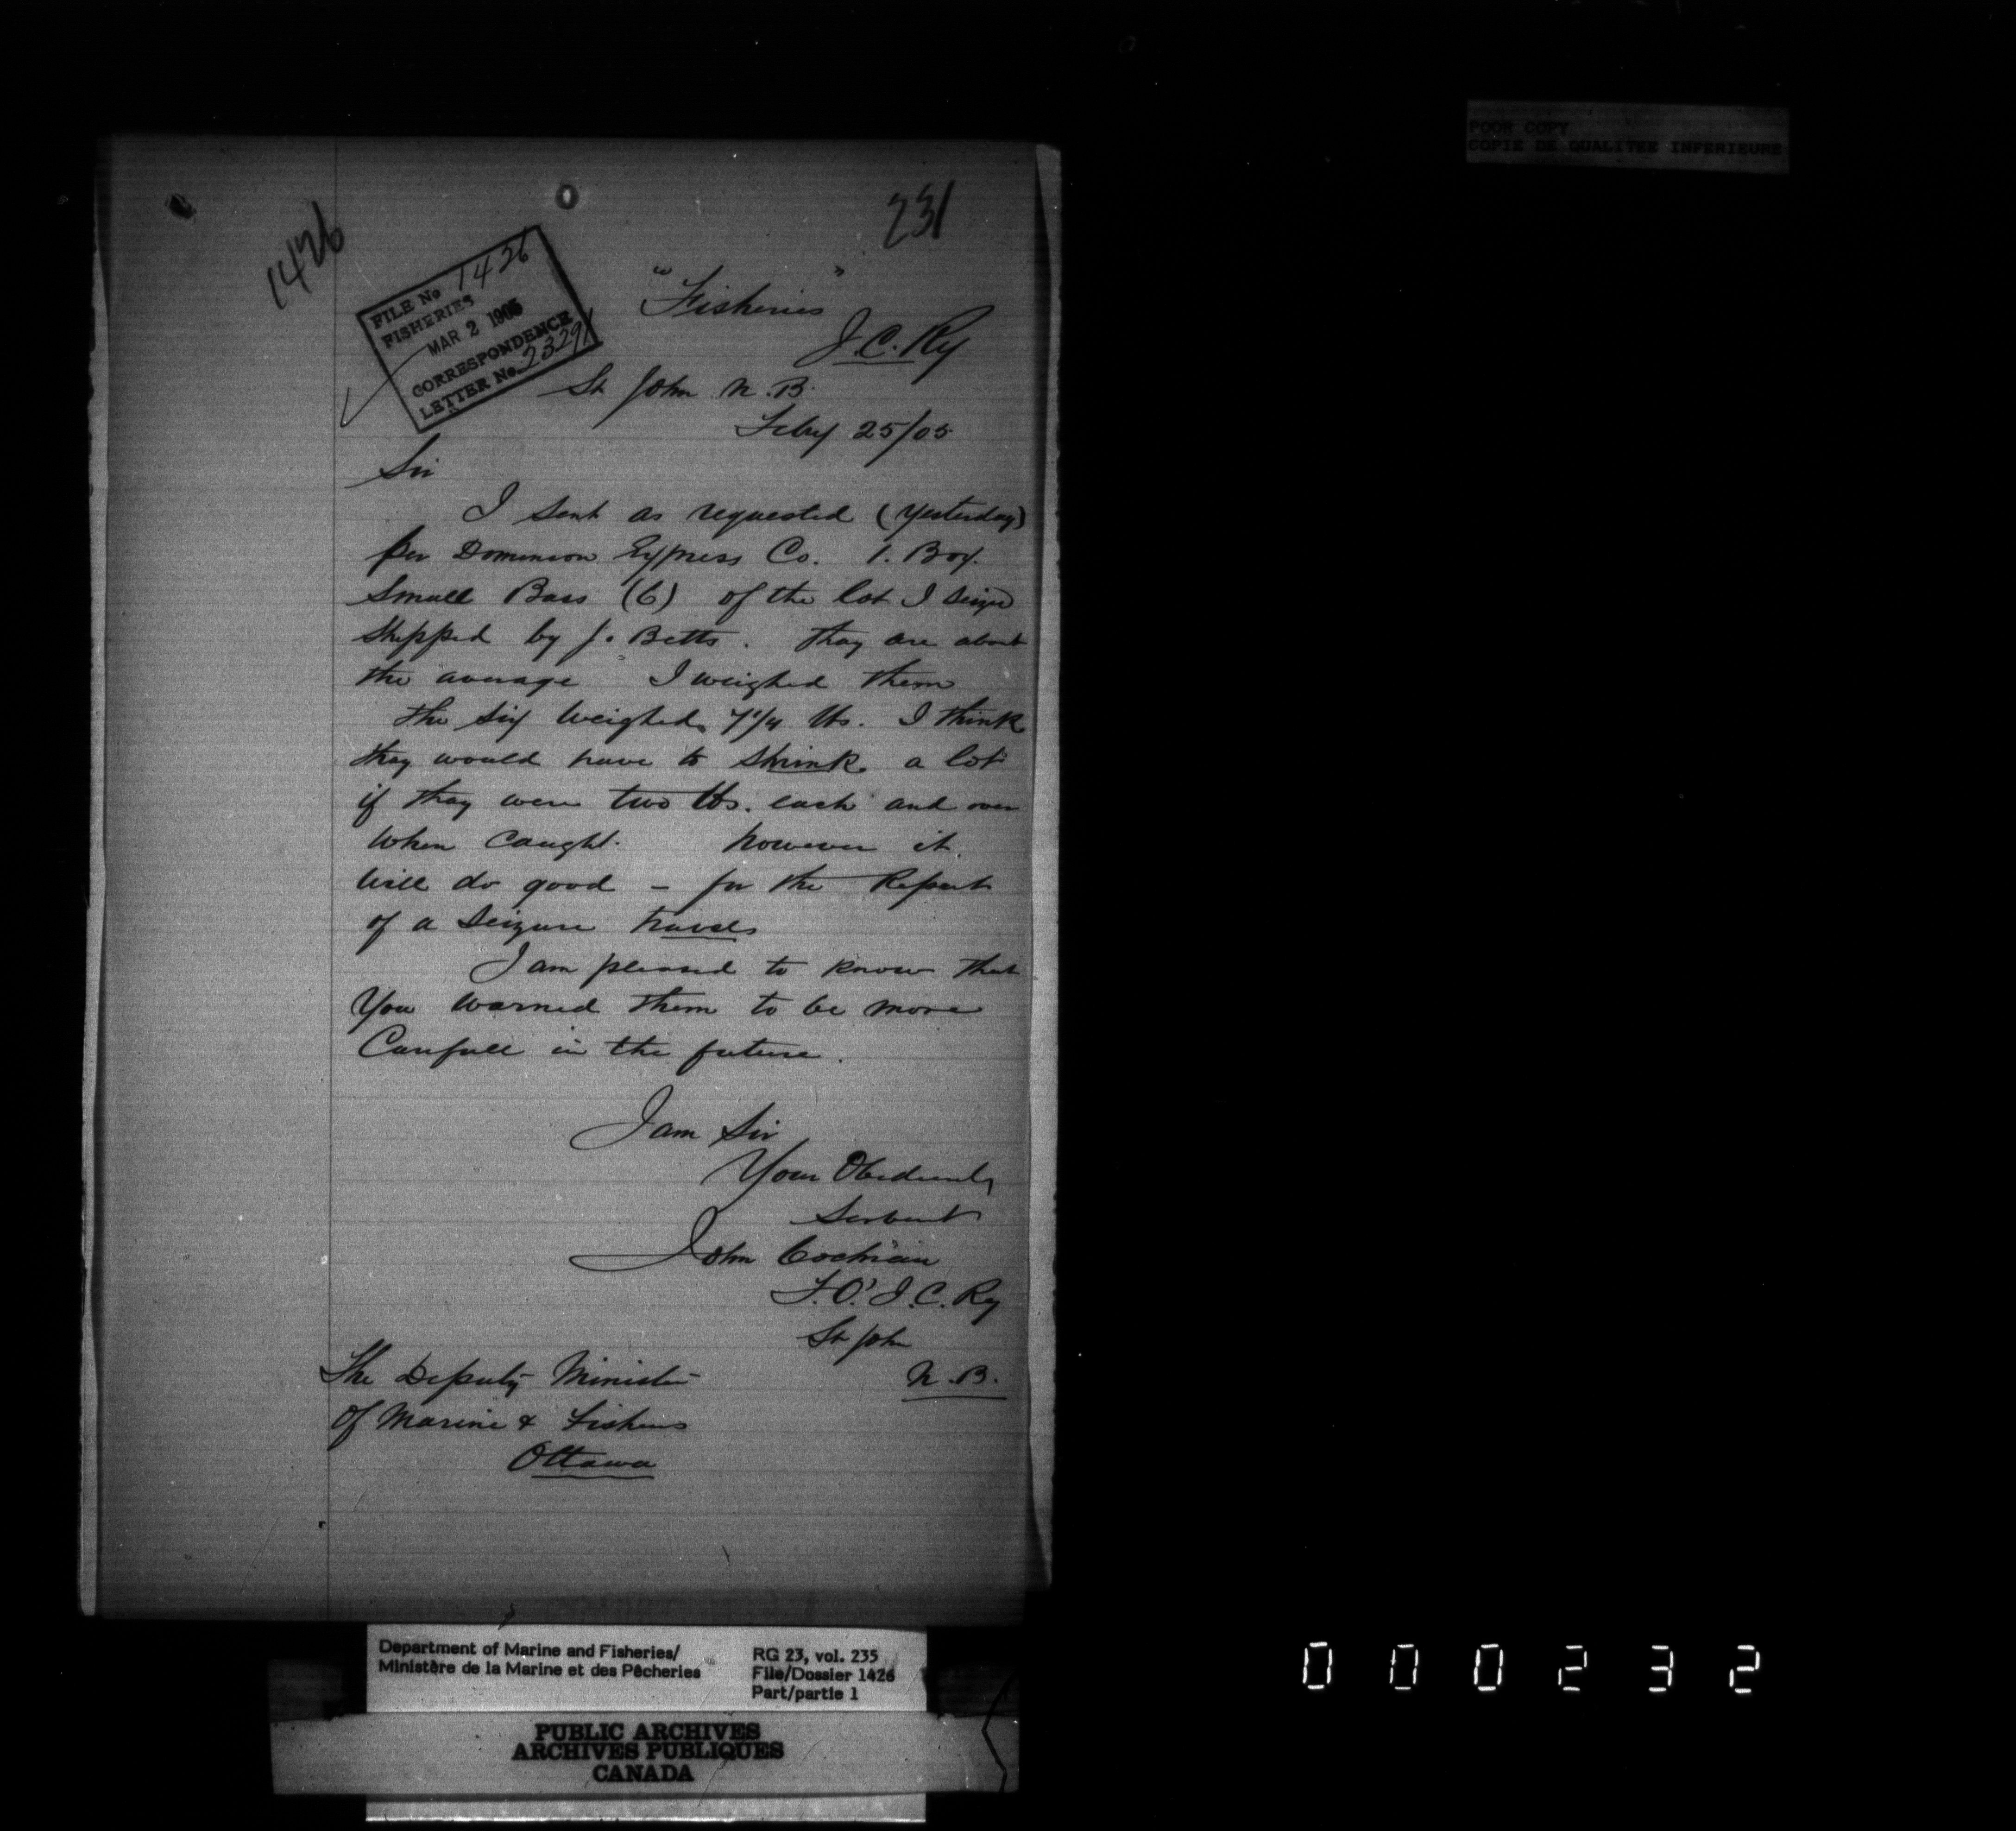 POOR COPY
COPIE DE QUALITEE INFERIEURE
231
1426
FILE No 1426
FISHERIES
MAR 2 1905
CORRESPONDENCE
LETTER No 23291
"Fisheries"
I.C. Ry
St John N.B.
Feby 25/05
Sir
I sent as requested (yesterday)
per Dominion Express Co. 1. Box.
Small Bass (6) of the lot I seized
shipped by J. Betts. thay are about
the average I weighed them
the six weighed 7 1/4 lbs. I think
thay would have to shrink a lot
if thay were two lbs. each and over
when caught. however it
will do good - for the Report
of a Seizure travels
I am pleased to know that
You warned them to be more
Carefull in the future.
I am Sir
Your Obedient
Servant
John Cochran
F.O. I.C. Ry
St John
N.B.
The Deputy Minister
Of Marine & Fisheries
Ottawa
Department of Marine and Fisheries/
Ministère de la Marine et des Pêcheries
RG 23, vol. 235
File/Dossier 1426
Part/partie 1
PUBLIC ARCHIVES
ARCHIVES PUBLIQUES
CANADA
000232